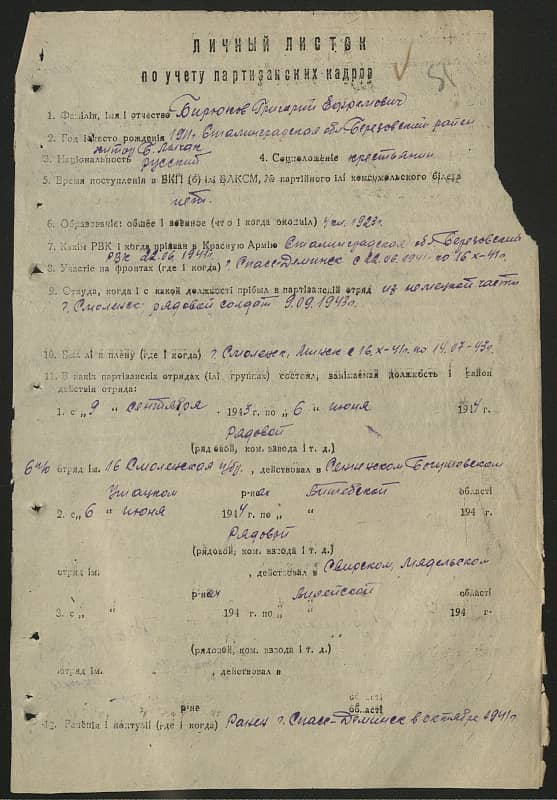 ЛИЧНЫЙ ЛИСТОК
по учету партизанских кадров
1. Фамілія, імя і отчество Бирюков Григорий
2. Год і место рождения 1911г. Сталинградская обл Березовский район
хутор Б. Лычак
3. Національность русский 4. Соцположеніе крестьянин
5. Время поступленія в ВКП (б) ілі ВЛКСМ, № партійного ілі комсомольского білета
нет.
6. Образованіе: общее і военное (что і когда окончіл) 4 кл. 1923г.
7. Какім РВК і когда прізван в Красную Армію Сталинградская обл Березовский
РВК 22.06.1941г.
8. Участіе на фронтах (где і когда) г. Спасс-Деминск с 22.06.1941 по 16.х-41г.
9. Откуда, когда і с какой должності прібыл в партізанскій отряд из немецкой части
г. Смоленск, рядовой солдат 9.09.1943г.
10. Был лі в плену (где і когда) г. Смоленск, Минск с 16.х-41г. по 14.07-43г.
11. В какіх партізанскіх отрядах (ілі группах) состоял, занімаемая должность і район
действія отряда:
1. с „ 9 " сентября 1943 г. по „ 6 " июня 1944 г.
Рядовой
(рядовой, ком. взвода і т. д.)
отряд ім. 16 Смоленская п/бр. , действовал в Сенненском Богушевском
Ушацком р-нах Витебской області
2. с „ 6 " июня 1944 г. по „ " 194 г.
Рядовой
(рядовой, ком. взвода і т. д.)
отряд ім. , действовал в Свирском, Мядельском
р-нах Вилейской області
3. с „ " 194 г. по „ " 194 г.
(рядовой, ком. взвода і т. д.)
отряд ім. , действовал в
р-не області
12. Раненія і контузіі (где і когда) Ранен г. Спасс-Деминск в октябре 1941г.